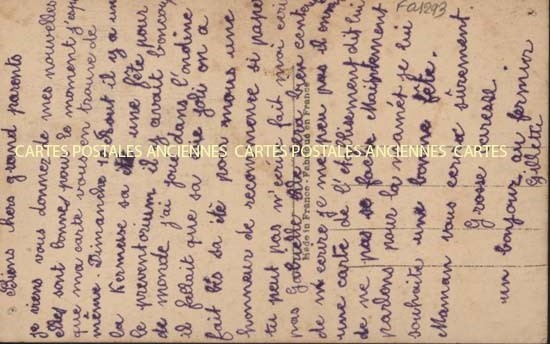 Biens chers grand parents
je viens vous donner de mes nouvelles
elles sont bonnes pour le moment j'espè
que ma carte vous en trouve de
même. Dimanche Août il y a un
la Kermesse sa une fête pour
le preventorium il y avait boncoup
de monde j'ai joué dans l'ondine
il fallait que sa soie joli on a
fait bis sa été pour nous une
honneur de recommence si papa
tu peut pas m'ecrire fait moi ecrire
pas Gabrielle elle sera bien contente
de m'ecrire je n'ai reçu pas
une carte de l'etablisement dit lui
de ne pas se facher Maintenant
parlons pour la mamé je lui
souhaite une bonne fête.
Maman vous ecrira sûrement
Grosse caresse.
un bonjour au fermier
Gillette
FA1293
CARTES POSTALES ANCIENNES CARTES POSTALES ANCIENNES CARTES
Made in France - Fabriqué en France - Made in France